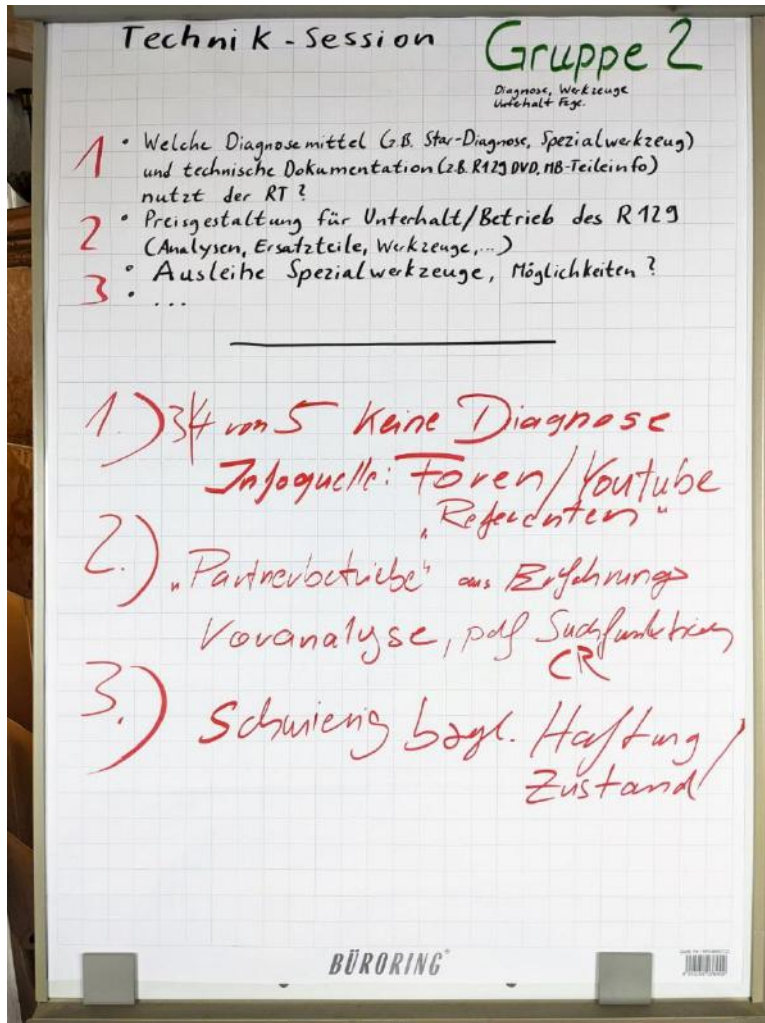 Technik-Session
Gruppe 2
Diagnose, Werkzeuge
Unterhalt
1 • Welche Diagnosemittel (z.B. Star-Diagnose, Spezialwerkzeug)
und technische Dokumentation (z.B. R129 DVD, MB-Teileinfo)
nutzt der RT?
2 • Preisgestaltung für Unterhalt/Betrieb des R129
(Analysen, Ersatzteile, Werkzeuge,...)
3 • Ausleihe Spezialwerkzeuge, Möglichkeiten?
• ...
1.) 3/4 von 5 Keine Diagnose
Infoquelle: Foren/Youtube
"Referenten"
2.) "Partnerbetriebe" aus Erfahrung
Voranalyse, pdf Suchfunktion
CR
3.) Schwierig bzgl. Haftung/
Zustand
BÜRORING